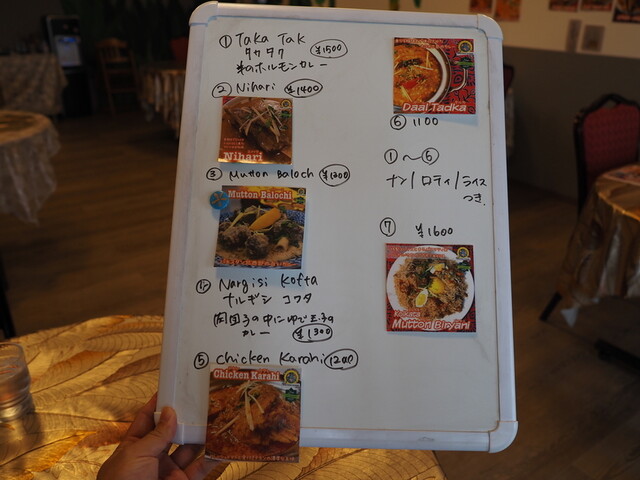 ① Taka Tak ¥1500
タカタク
羊のホルモンカレー
② Nihari ¥1400
Nihari
③ Mutton Baloch ¥1300
Mutton Balochi
④ Nargisi Kofta
ナルギシ コフタ
肉団子の中にゆで玉子の
カレー ¥1300
⑤ Chicken Karahi 1200
Chicken Karahi
Daal Tadka
⑥ 1100
①〜⑥
ナン/ロティ/ライス
つき.
⑦ ¥1600
Kolkata
Mutton Biryani